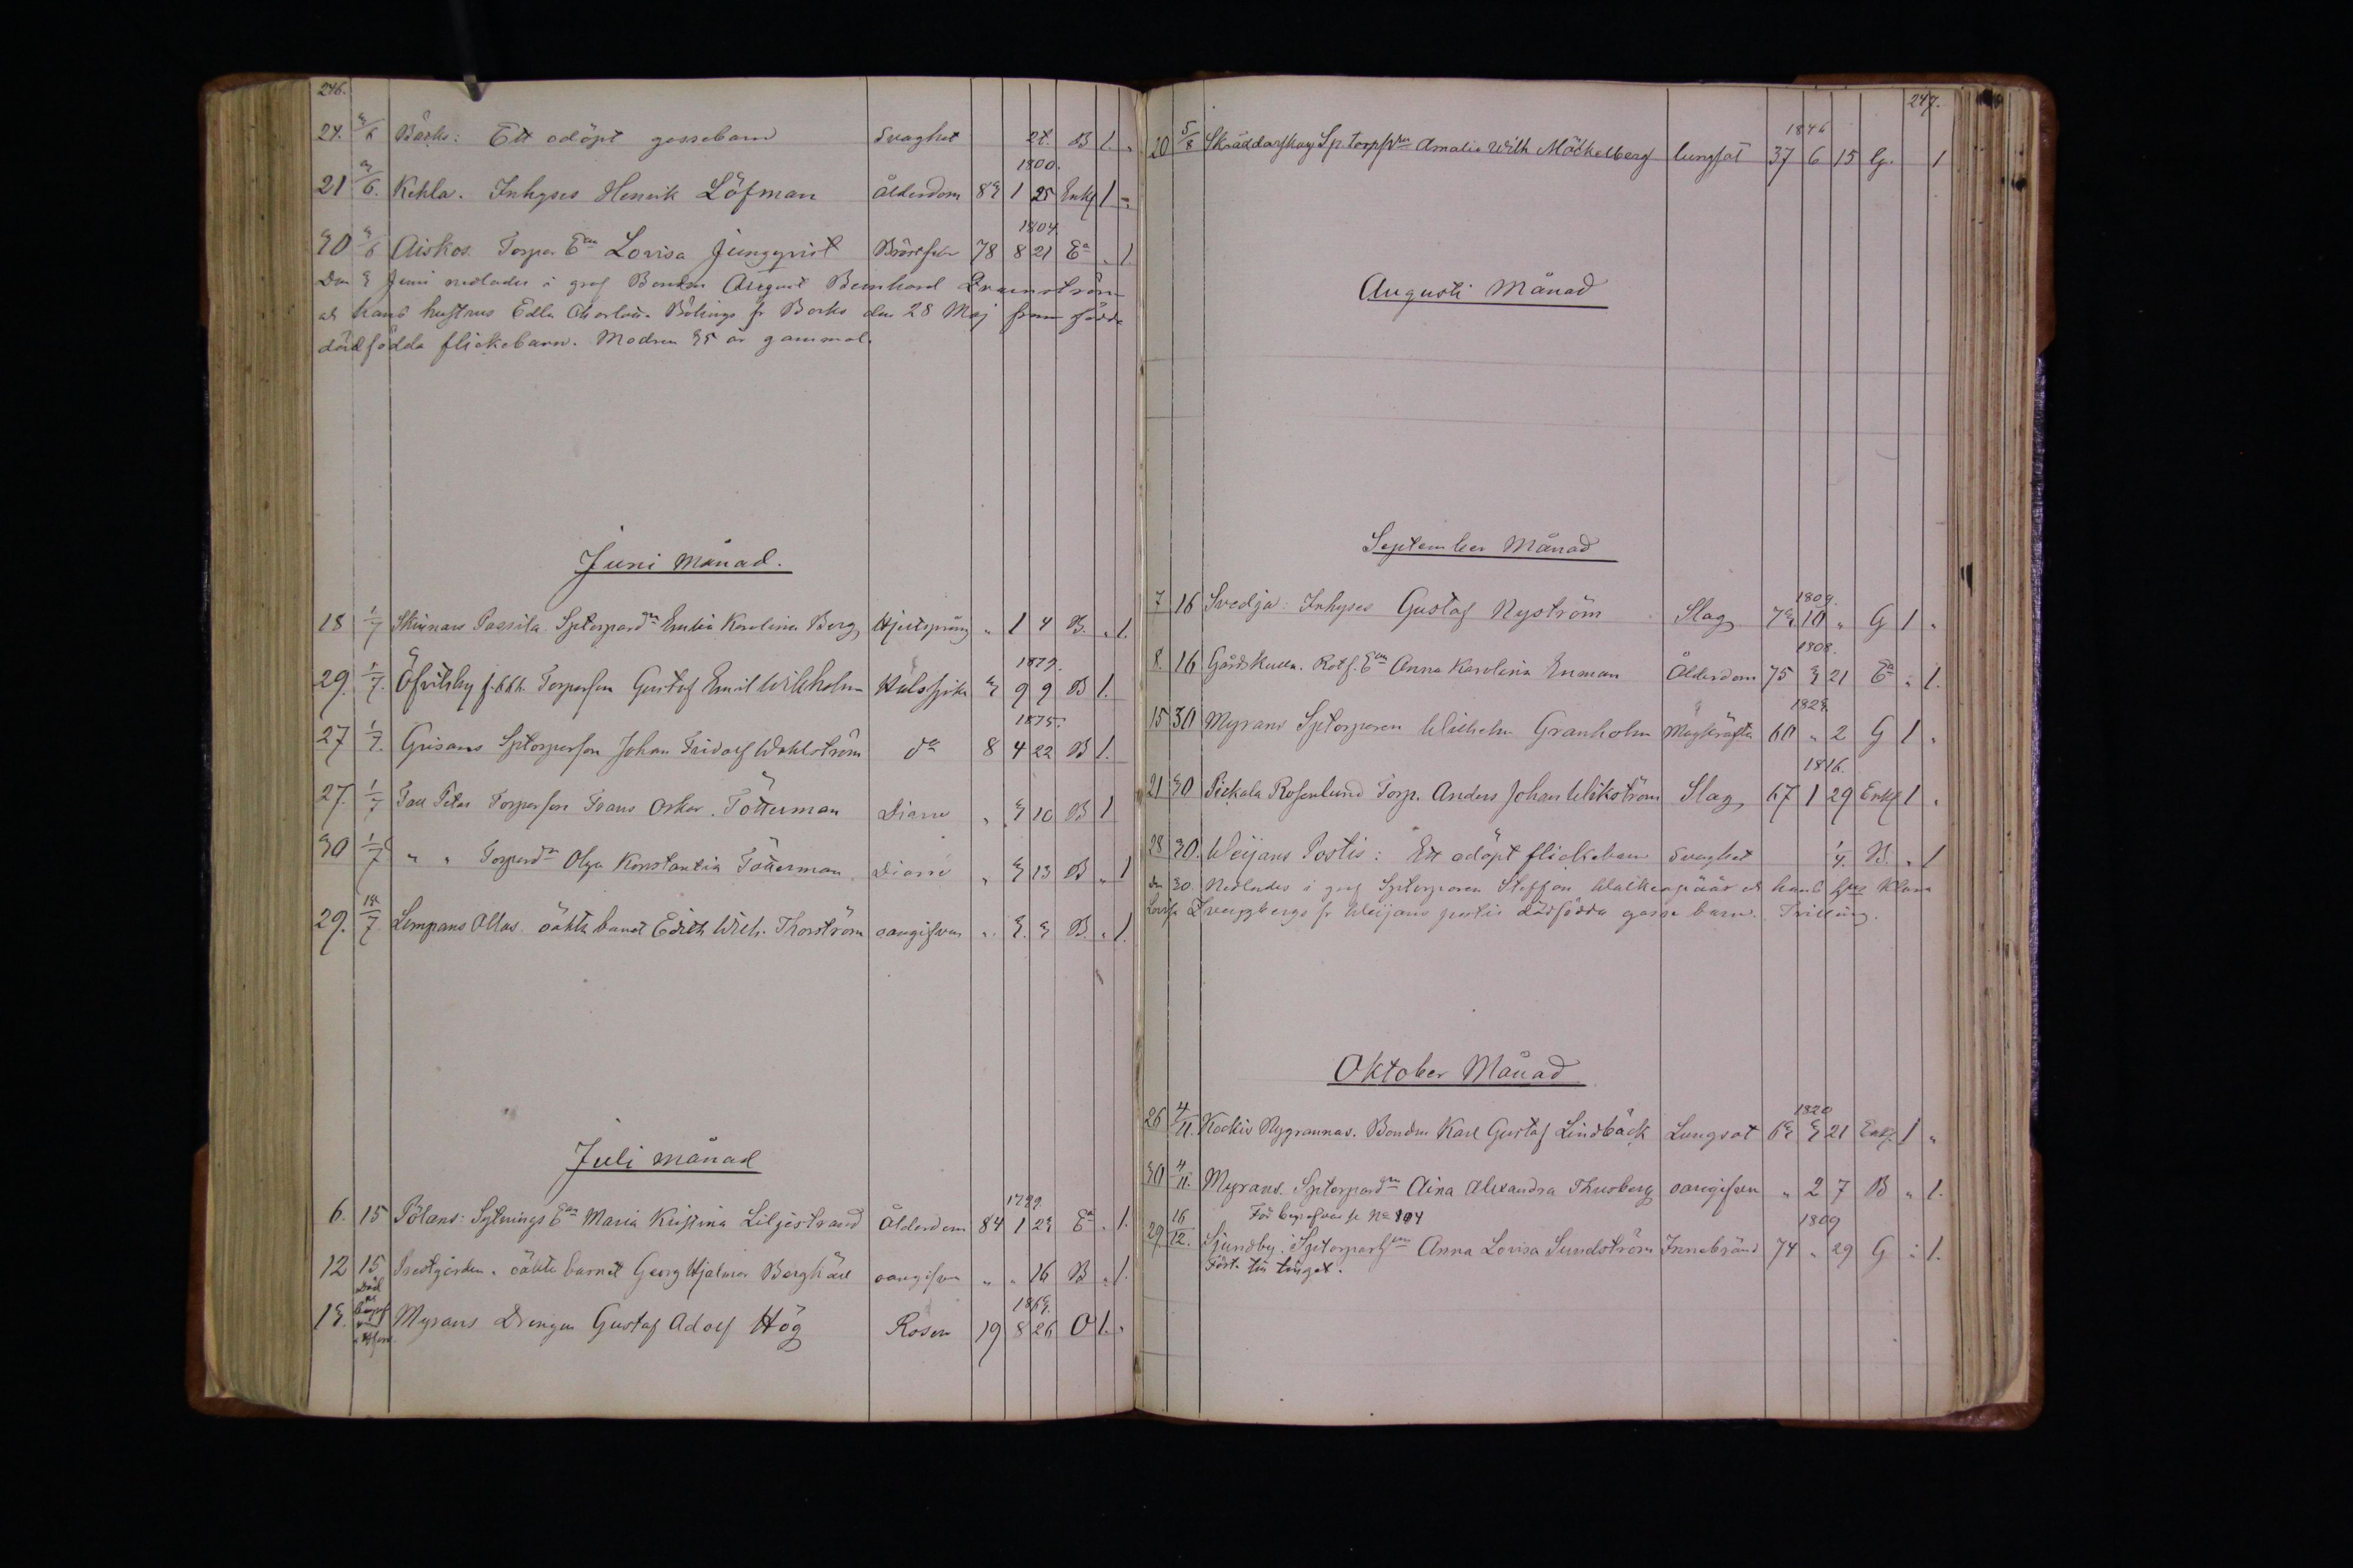 246.
24. 3/6 Bäcks: Ett odöpt gossebarn Svaghet 2t. B 1. „
1800.
21 3/6. Kehla. Inhyses Henrik Löfman Ålderdom 83 1 25 Enkl 1 „
1804
30 3/6 Aiskos. Torpar Ean Lovisa Ljungqvist 78 8 21 Ea „ 1.
Den 3 Juni nedlades i graf Bonden August Bernhard
ch hans hustrus Edla Charlotta Bölings fr Bäcks den 28 Maj fram födda
dödfödda flickebarn. Modren 35 år gammal.
Juni Månad.
18 1/7 Skinnars Passila. Sptorpard Emilia Karolina Berg Hjertsprång „ 1 4 B. „ 1.
1879.
29. 1/7. Öfvitsby Torparson Gustaf Emil Wikholm Halssjuka 3 9 9 B 1.
1875.
27 1/7. Grisans Sptorparson Johan Fridolf Wahlström do 8 4 22 B 1.
27. 1/7 Tall Petas Torparson Frans Oskar Tötterman Diarre „ 3 10 B 1
30 1/7 „ „ Torpard Olga Konstantia Tötterman Diarre „ 3 13 B „ 1
29. 1/7 Lempans Ollas oäkta barnet Edith Wilh. Thorström oangifven „ 3. 3 B. „ 1.
Juli månad
1799.
6. 15 Pölans: Sytnings Ean Maria Kristina Liljestrand Ålderdom 84 1 23 Ea „ 1.
12 15 Prestgården. oäkta barnet Georg Hjalmar Berghäll oangifven „ „ 16 B „ 1.
1863.
13. Myrans Drengen Gustaf Adolf Hög Rosen 19 8 26 O 1. „
247.
1846
20 5/8 Skräddarskog Sptorpshn Amalia Wilh Möckelberg lungsot 37 6 15 G. 1
Augusti Månad
September Månad
1809.
7 16 Svedja: Inhyses Gustaf Nyström Slag 73 10 „ G 1 „
1808.
8. 16 Gårdskulla. Rotf. Ean Anna Karolina Enman Ålderdom 75 3 21 Ea „ 1.
1823.
15 30 Myrans Sptorparen Wilhelm Granholm Magkräfta 60 „ 2 G 1 „
1816.
21 30 Pickala Rosenlund Torp. Anders Johan Wikström Slag 67 1 29 Enkl 1 „
28 30. Weijans Postis: Ett odöpt flickebarn Svaghet 1/4. B. „ 1
Den 30. Nedlades i graf Sptorparen Steffan ch hans hus Klara
Lovisa Tvengsbergs fr Weijans postis dödfödda gosse barn. Tvilling.
Oktober Månad
1820
26 4/11. Kockis Nygrannas. Bonden Karl Gustaf Lindbäck Lungsot 63 3 21 Enkl. 1 „
30 4/11. Myrans. Sptorpardn Aina Alexandra Thusberg oangifven „ 2 7 B „ 1.
För begrafven se No 104
1809
29 16/12. Sjundby. Sptorpars Anna Lovisa Sundström Innebränd 74 „ 29 G „ 1.
Förts till tinget.